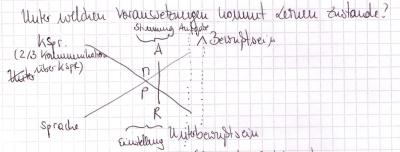 Unter welchen Voraussetzungen kommt Lernen zustande?
Stimmung Aufgabe
KSpr. A Bewußtsein
(2/3 Kommunikation
über KSpr) n
P
R
Sprache
Einstellung Unterbewußtsein